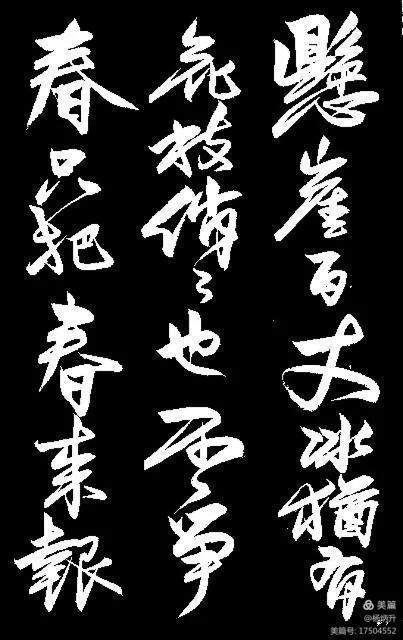 懸崖百丈冰猶有
花枝俏〻也不爭
春只把春來報
美篇
@杨炳升
美篇号: 17504552